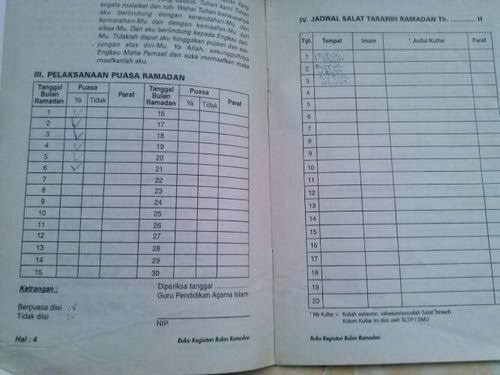 segala malaikat dan ruh. Wahai Tuhan kami
aku berlindung dengan keredhaan-Mu dari
kemarahan-Mu dan dengan kemaafan-Mu dari
siksa-Mu. Dan aku berlindung kepada Engkau dari-
Mu. Tidaklah dapat aku hinggakan pujian dan san-
jungan atas diri-Mu. Ya Allah, sesungguhnya
Engkau Maha Pemaaf dan suka memaafkan maka
maafkanlah aku.
III. PELAKSANAAN PUASA RAMADAN
Tanggal Bulan Ramadan Puasa Paraf Tanggal Bulan Ramadan Puasa Paraf
Ya Tidak Ya Tidak
1 ✓ 16
2 ✓ 17
3 ✓ 18
4 ✓ 19
5 ✓ 20
6 ✓ 21
7 22
8 23
9 24
10 25
11 26
12 27
13 28
14 29
15 30
Ketrangan :
Berpuasa diisi : √
Tidak diisi : -
Diperiksa tanggal ............
Guru Pendidikan Agama Islam
NIP.
Hal : 4
Buku Kegiatan Bulan Ramadan
IV. JADWAL SALAT TARAWIH RAMADAN Th. ........... H
Tgl. Tempat Imam * Judul Kultar Paraf
1
2
3
4
5
6
7
8
9
10
11
12
13
14
15
16
17
18
19
20
* Nb Kultar = Kuliah sebentar, sebelum/sesudah Salat Tarawih
Kolom Kultar ini diisi oleh SLTP / SMU
Buku Kegiatan Bulan Ramadan